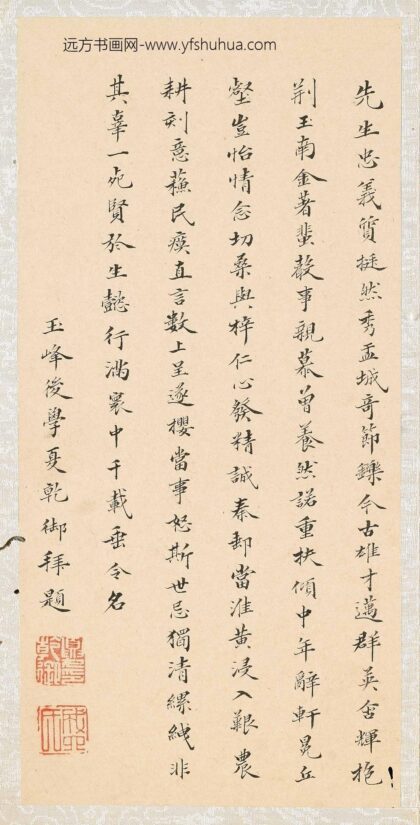 远方书画网-www.yfshuhua.com
先生忠義質挺然秀盂城奇節鑠今古雄才邁群英含輝抱
荆玉南金著蜚聲事親慕曾養然諾重扶傾中年辭軒冕丘
壑豈怡情念切桑與梓仁心發精誠秦郵當淮黄浸入艱農
耕刻意蘓民瘼直言數上呈遂攖當事怒斯世忌獨清縲絏非
其辜一死賢於生懿行滿寰中千載垂令名
玉峰後學夏乾御拜題